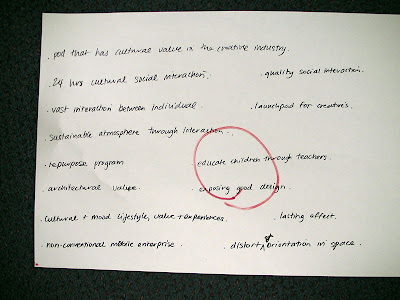 . pod that has cultural value in the creative industry.
. 24 hrs cultural social interaction.
. quality social interaction.
. vast interaction between individual.
. launchpad for creative's.
. sustainable atmosphere through interaction.
. repurpose program
. educate children through teachers.
. architectural value.
. exposing good design.
. cultural + mood lifestyle, value + experiences.
. lasting affect.
. non-conventional mobile enterprise.
. distort & orientation in space.